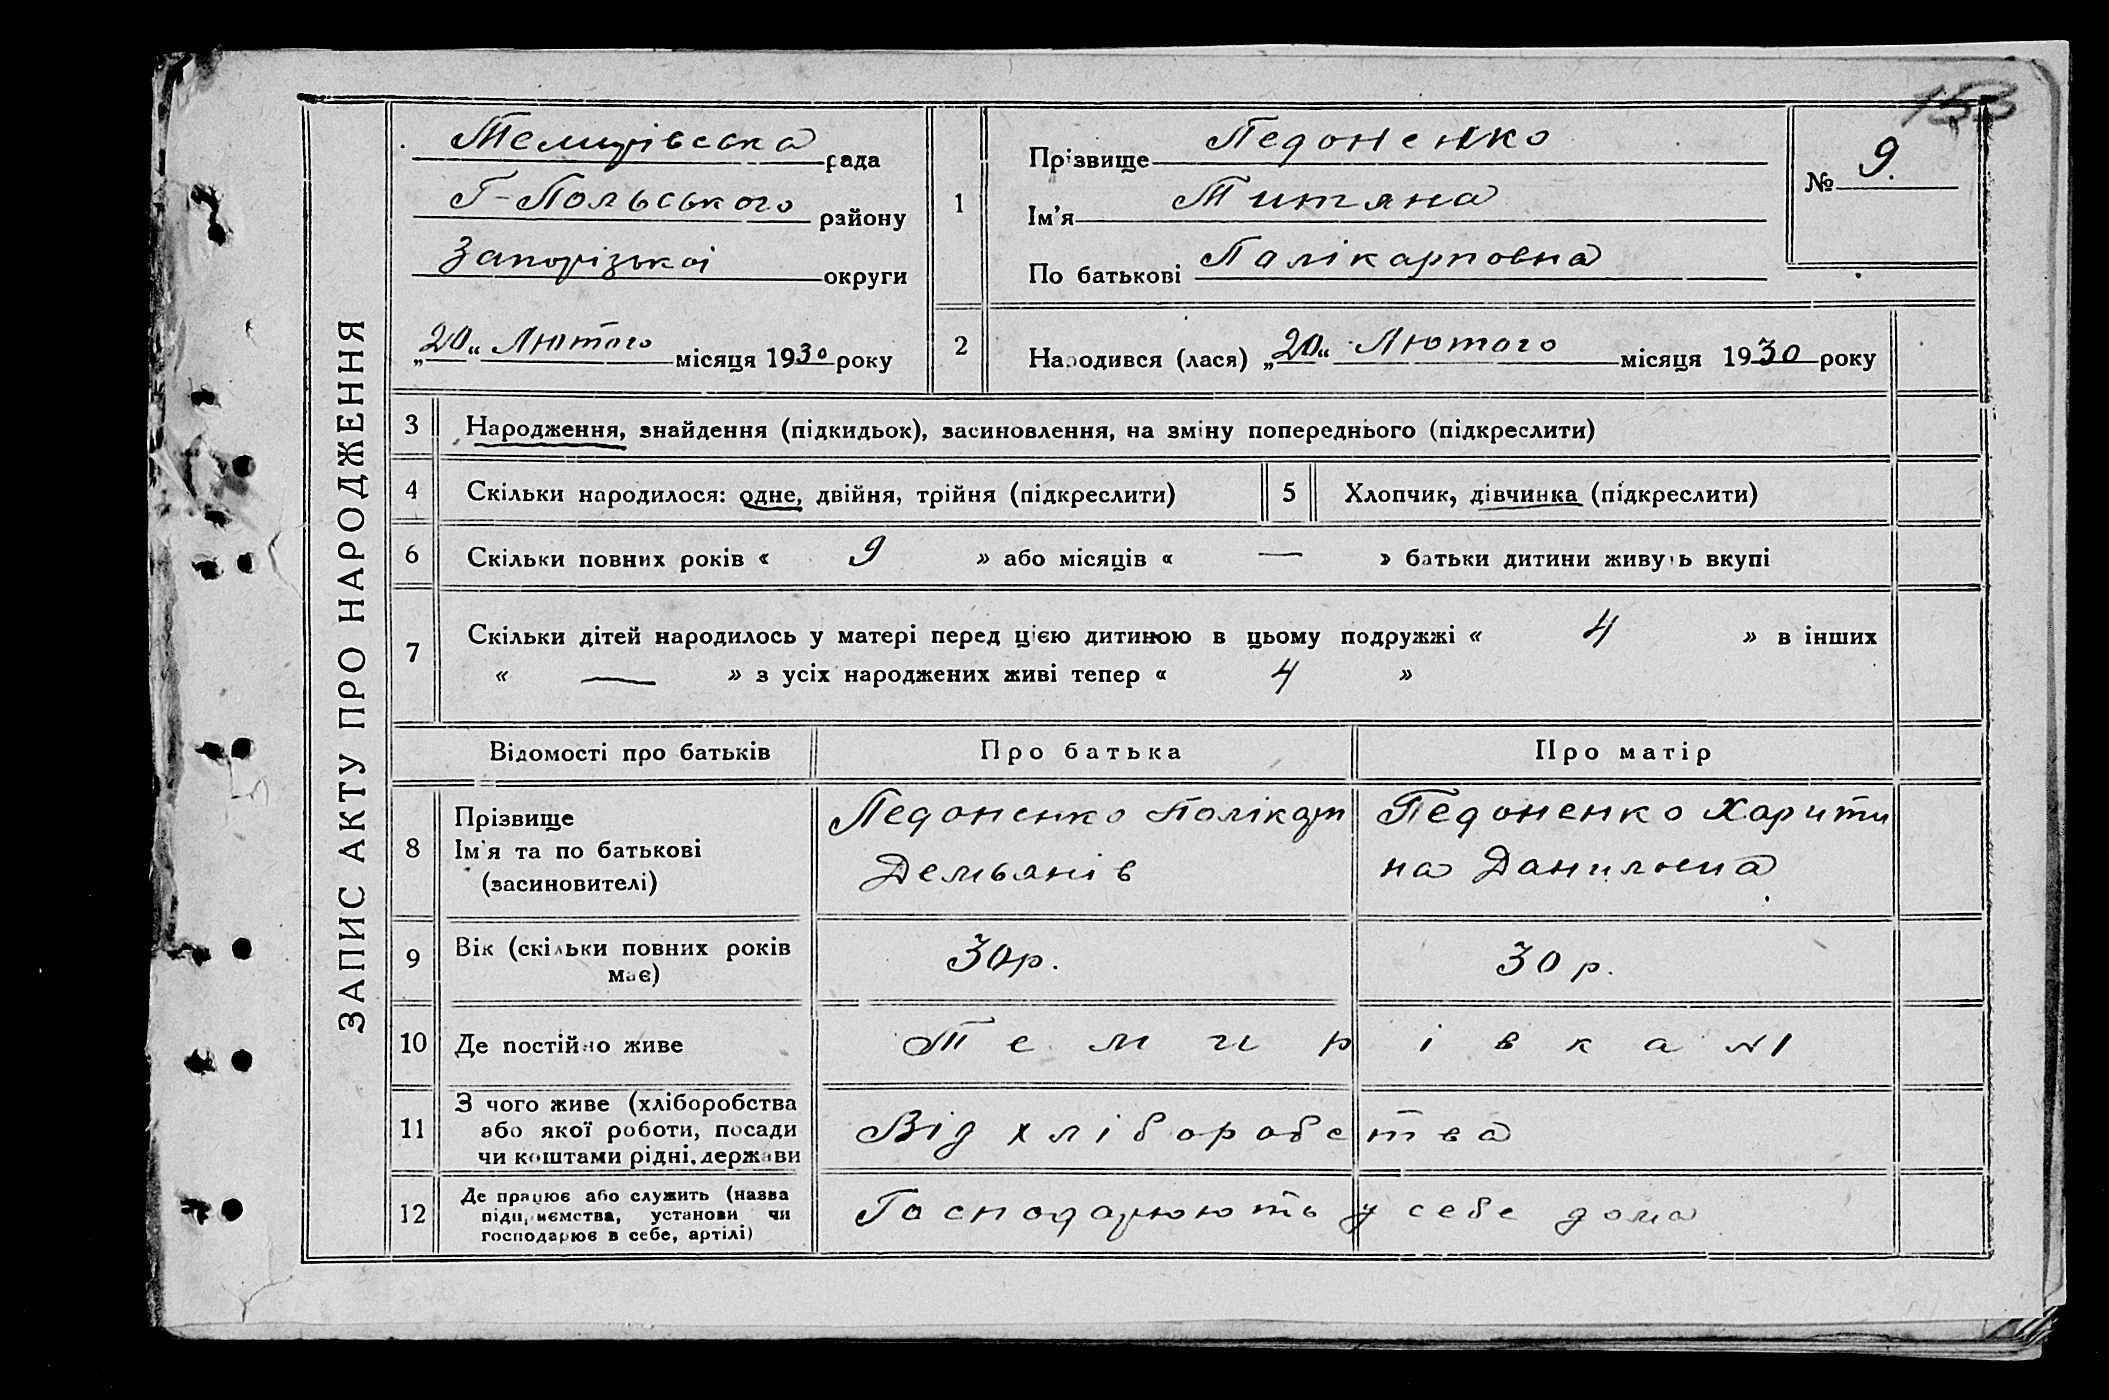 153
ЗАПИС АКТУ ПРО НАРОДЖЕННЯ
Темирівська рада
Г-Польського району
Запорізької округи
„20“ Лютого місяця 1930 року
1
Прізвище Педоненко
Ім’я Титяна
По батькові Палікарповна
№ 9.
2
Народився (лася) „20“ Лютого місяця 1930 року
3 Народження, знайдення (підкидьок), засиновлення, на зміну попереднього (підкреслити)
4 Скільки народилося: одне, двійня, трійня (підкреслити)
5 Хлопчик, дівчинка (підкреслити)
6 Скільки повних років « 9 » або місяців « — » батьки дитини живуть вкупі
7 Скільки дітей народилось у матері перед цією дитиною в цьому подружжі « 4 » в інших
« — » з усіх народжених живі тепер « 4 »
Відомості про батьків Про батька Про матір
8 Прізвище
Ім’я та по батькові
(засиновителі)
Педоненко Полікарп
Демьянів
Педоненко Харити
на Даниловна
9 Вік (скільки повних років
має)
30р. 30 р.
10 Де постійно живе Темирівка №1
11 З чого живе (хліборобства
або якої роботи, посади
чи коштами рідні, держави
Від хліборобства
12 Де працює або служить (назва
підприємства, установи чи
господарює в себе, артілі)
Господарюють у себе дома